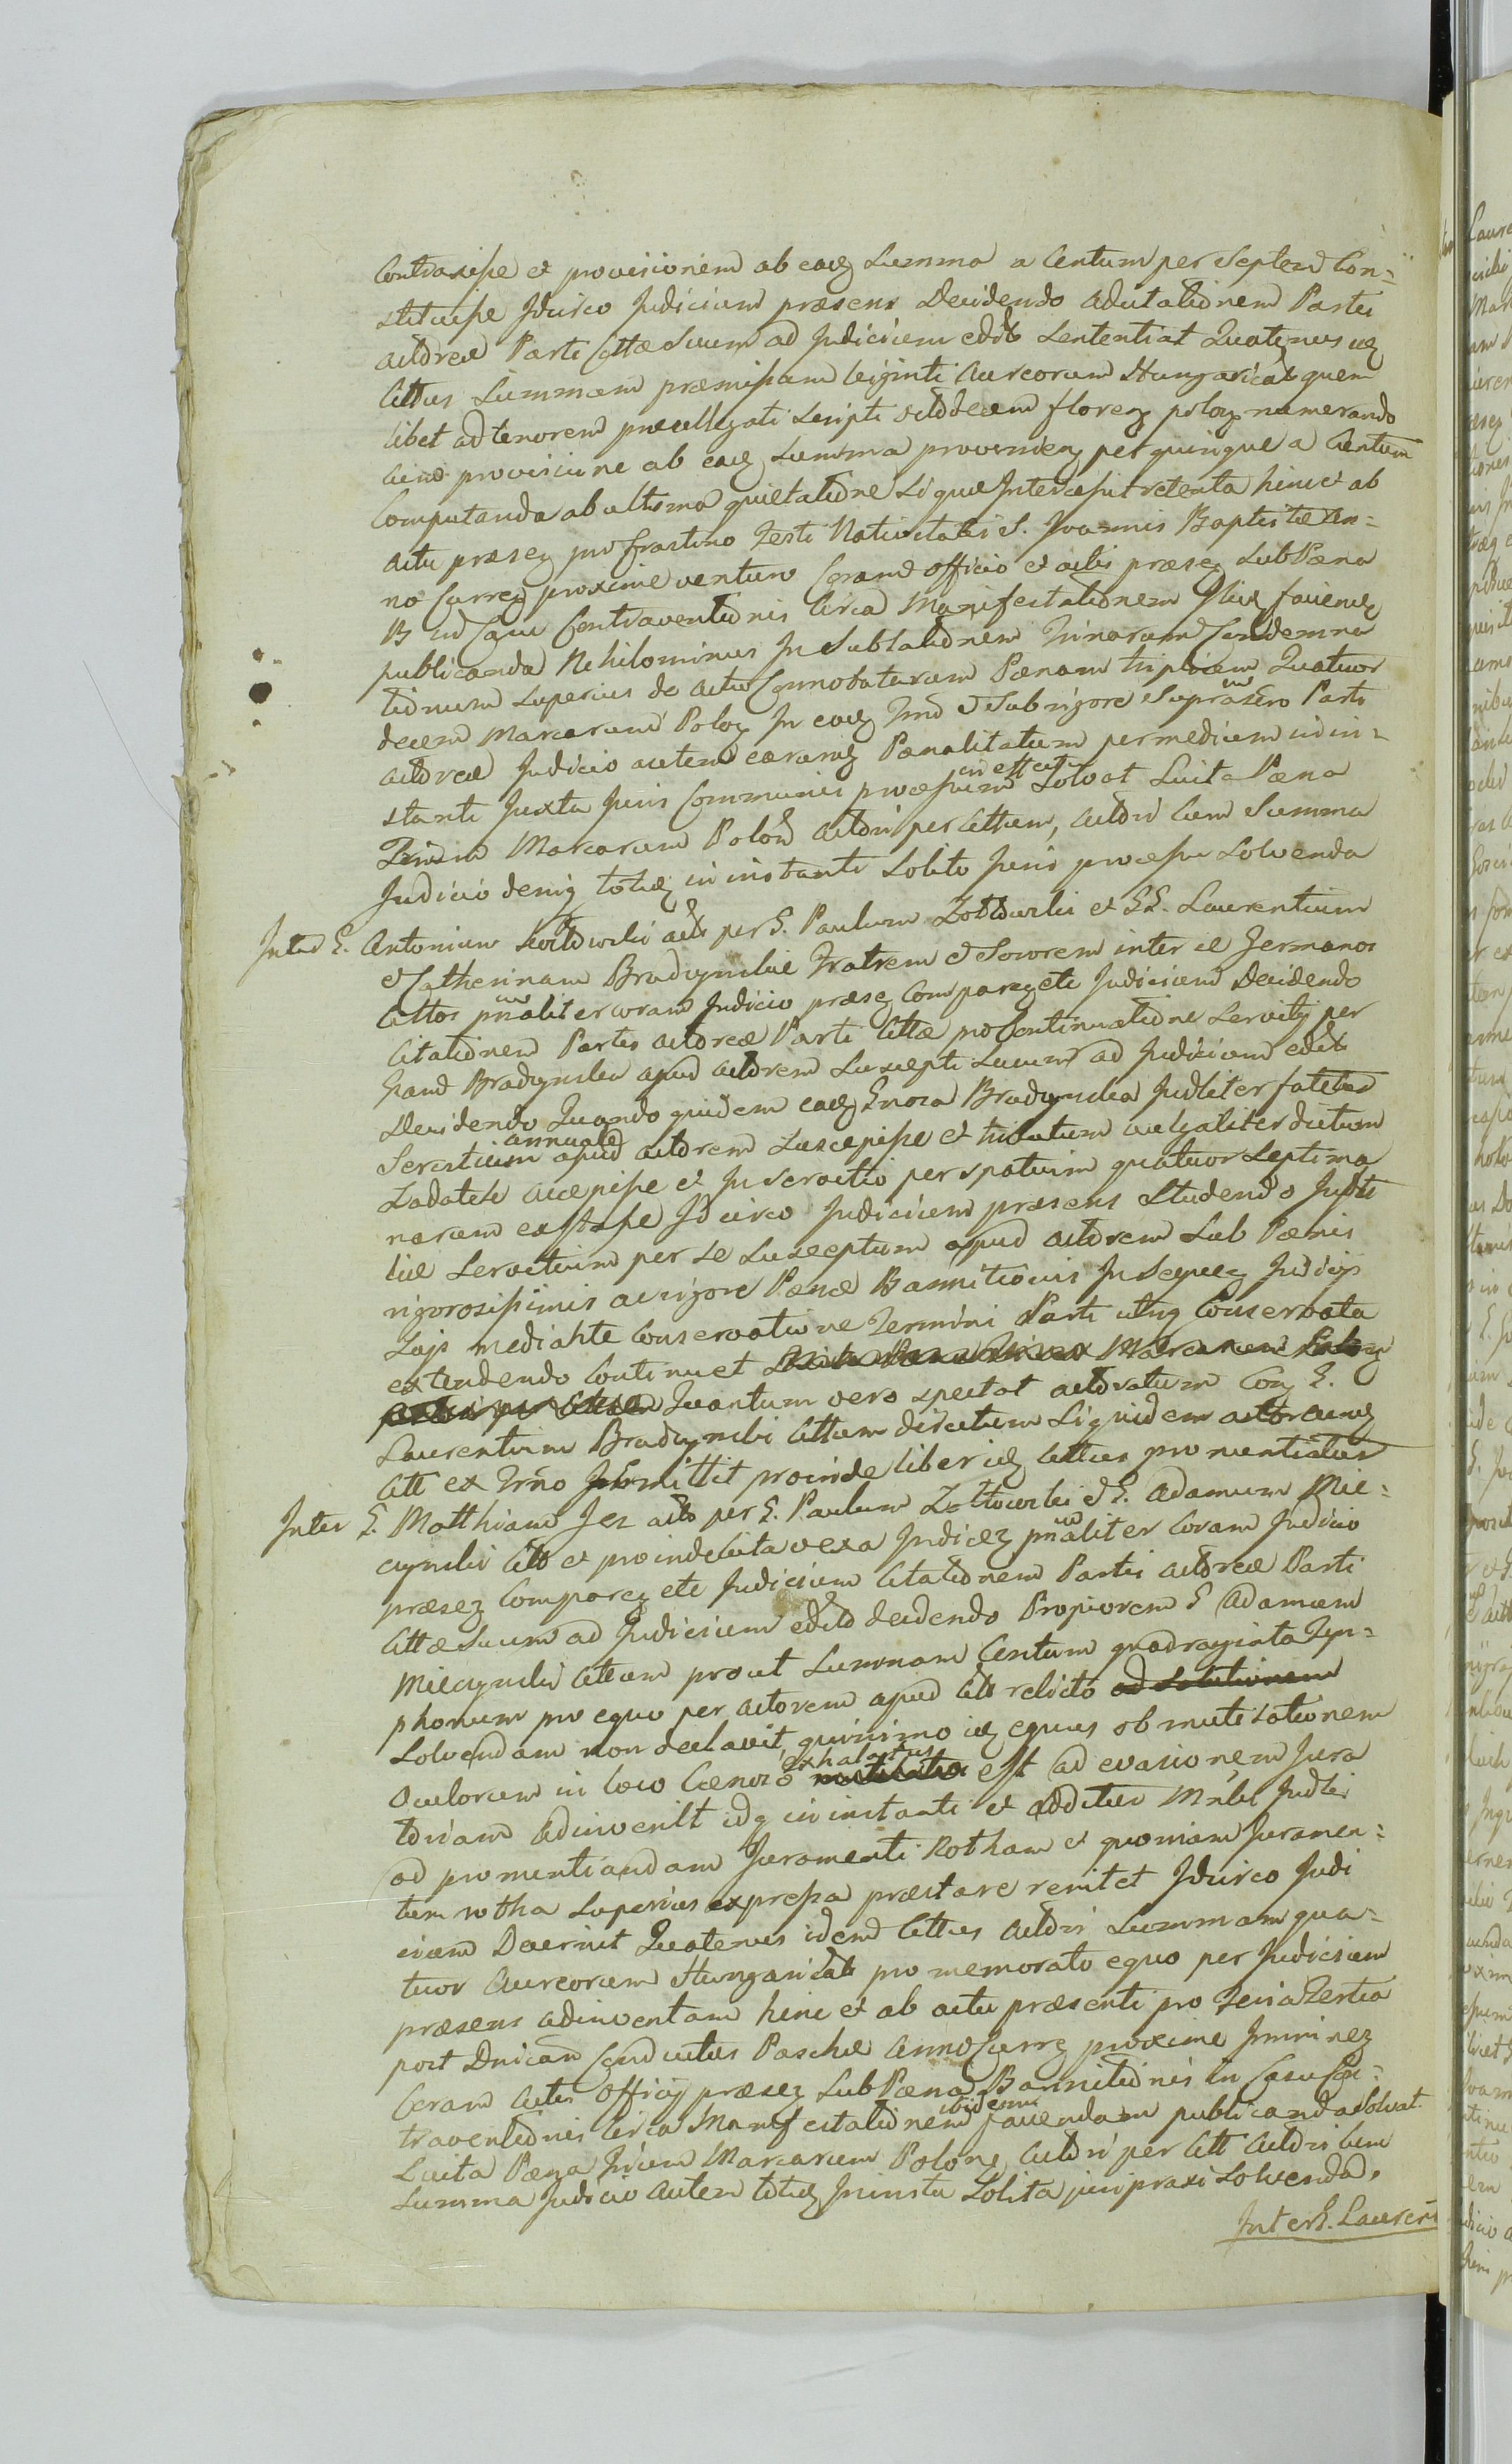 Contraxisse et provisionem ab eadq Summa a Centum per Septem Con=
stituisse Idcirco Judicium præsens Decidendo Actutationem Partis
actoreæ Parti Cittæ Suum ad Judicium edit Sententiat Quatenus idq
Cittus Summam præmissam viginti Aureorum Hungarical quem
libet ad tenorem præallegati Scripti octodecem floreq poloq numerando
cum provisione ab eadq Summa provenieq per quinque a Centum
Computanda ab ultima quietatione Si quæ Intercessit retenta hinc et ab
actu præseq pro Crastino Festi Nativitatis S. Joannis Baptistæ An=
no Curreq proxime venturo Coram officio et actis præseq Sub Pæna
B in Casu Contraventionis Circa Manifestationem faciendq
publicanda Nihilominus In Sublationem Trinarum Condemna
tionum Superius de actu Connotatarum Pænam triplicem Quatuor
decem Marcarum Poloq In eadq Trno et Sub rigore Suprascro Parti
actoreæ Judicio autem earumq Pænalitatum per medium in in=
stanti Juxta Juris Communis processum in effectu Solvat Luita Pæna
Trium Marcarum Polon actori per Cittum, actori Cum Summa
Judicio deniq totidq in instanti Solito Juris processu Solvenda
Inter G. Antonium actr per G. Paulum Zottowski et GG. Laurentium
et Catherinam Bradynskie Fratrem et Sororem inter se Germanos
Cittos pnaliter coram Judicio præseq Compareq etc Judicium Decidendo
Citationem Partis actoreæ Parti Cittæ pro Continuatione Servitij per
Gnam Bradynska apud actorem Suscepti Suum ad Judicium edit
Decidendo Quandoquidem eadq Gnosa Bradynska Judliter fatetur
Servitium annuale apud actorem Suscepisse et tributum vulgaliter dictum
Zadatek accepisse et In Servitio per spatium quatuor Septima
narum exstitisse Idcirco Judicium præsens Studendo Justi
tiæ Servitium per se Susceptum apud actorem Sub Pænis
rigorosissimis ac rigore Pænæ Bannitionis In Sequeq Judicijs
Sujs mediante Conservatione Termini Parti utriq Conservata
extendendo Continuet Luita Pæna Trium Marcarum Poloq
actori per Cittum Quantum vero spectat actoratum Coq G.
Laurentium Bradynski Cittum directum Siquidem actor eumq
Citt ex Trno proinde liber idq Cittus pronuntiatur
Inter G. Matthiam Jez actr per G. Paulum Zottowski et G. Adamum Mie=
cynski Citt et pro indebita vexa Judiceq pnaliter Coram Judicio
præseq Compareq etc Judicium Citationem Partis actoreæ Parti
Cittæ Suum ad Judicium edito decidendo Propiorem G Adamum
Miecynski Cittum prout Summam Centum quadraginta Tym=
phonum pro equo per actorem apud Citt relicto ad Solutionem
Solvendam non declaravit, quinimo idq equus ob mutilationem
oculorum in loco exhalatus mutilatus est ad evasionem Jura
toriam adinvenit idq in instanti et additur Mnlis Judlis
ad pronuntiandam Juramenti Rotham et quoniam Juramen=
tum rotha Superius expressa præstare renitet Idcirco Judi
cium Decernit Quatenus idem Cittus actori Summam qua=
tuor Aureorum Hungarical pro memorato equo per Judicium
præsens adinventam hinc et ab actu præsenti pro Feria Tertia
post Dnicam Conductus Paschæ Anno Curreq proxime Immineq
Coram Actis Officij præseq Sub Pæna Bannitionis in Casu Con=
traventionis Circa Manifestationem ibidemq faciendam publicanda solvat
Luita Pæna Trium Marcarum Poloneq actori per Citt actori Cum
Summa Judicio autem totidq In instanti Solita juris praxi Solvenda.
Inter G. Laurent